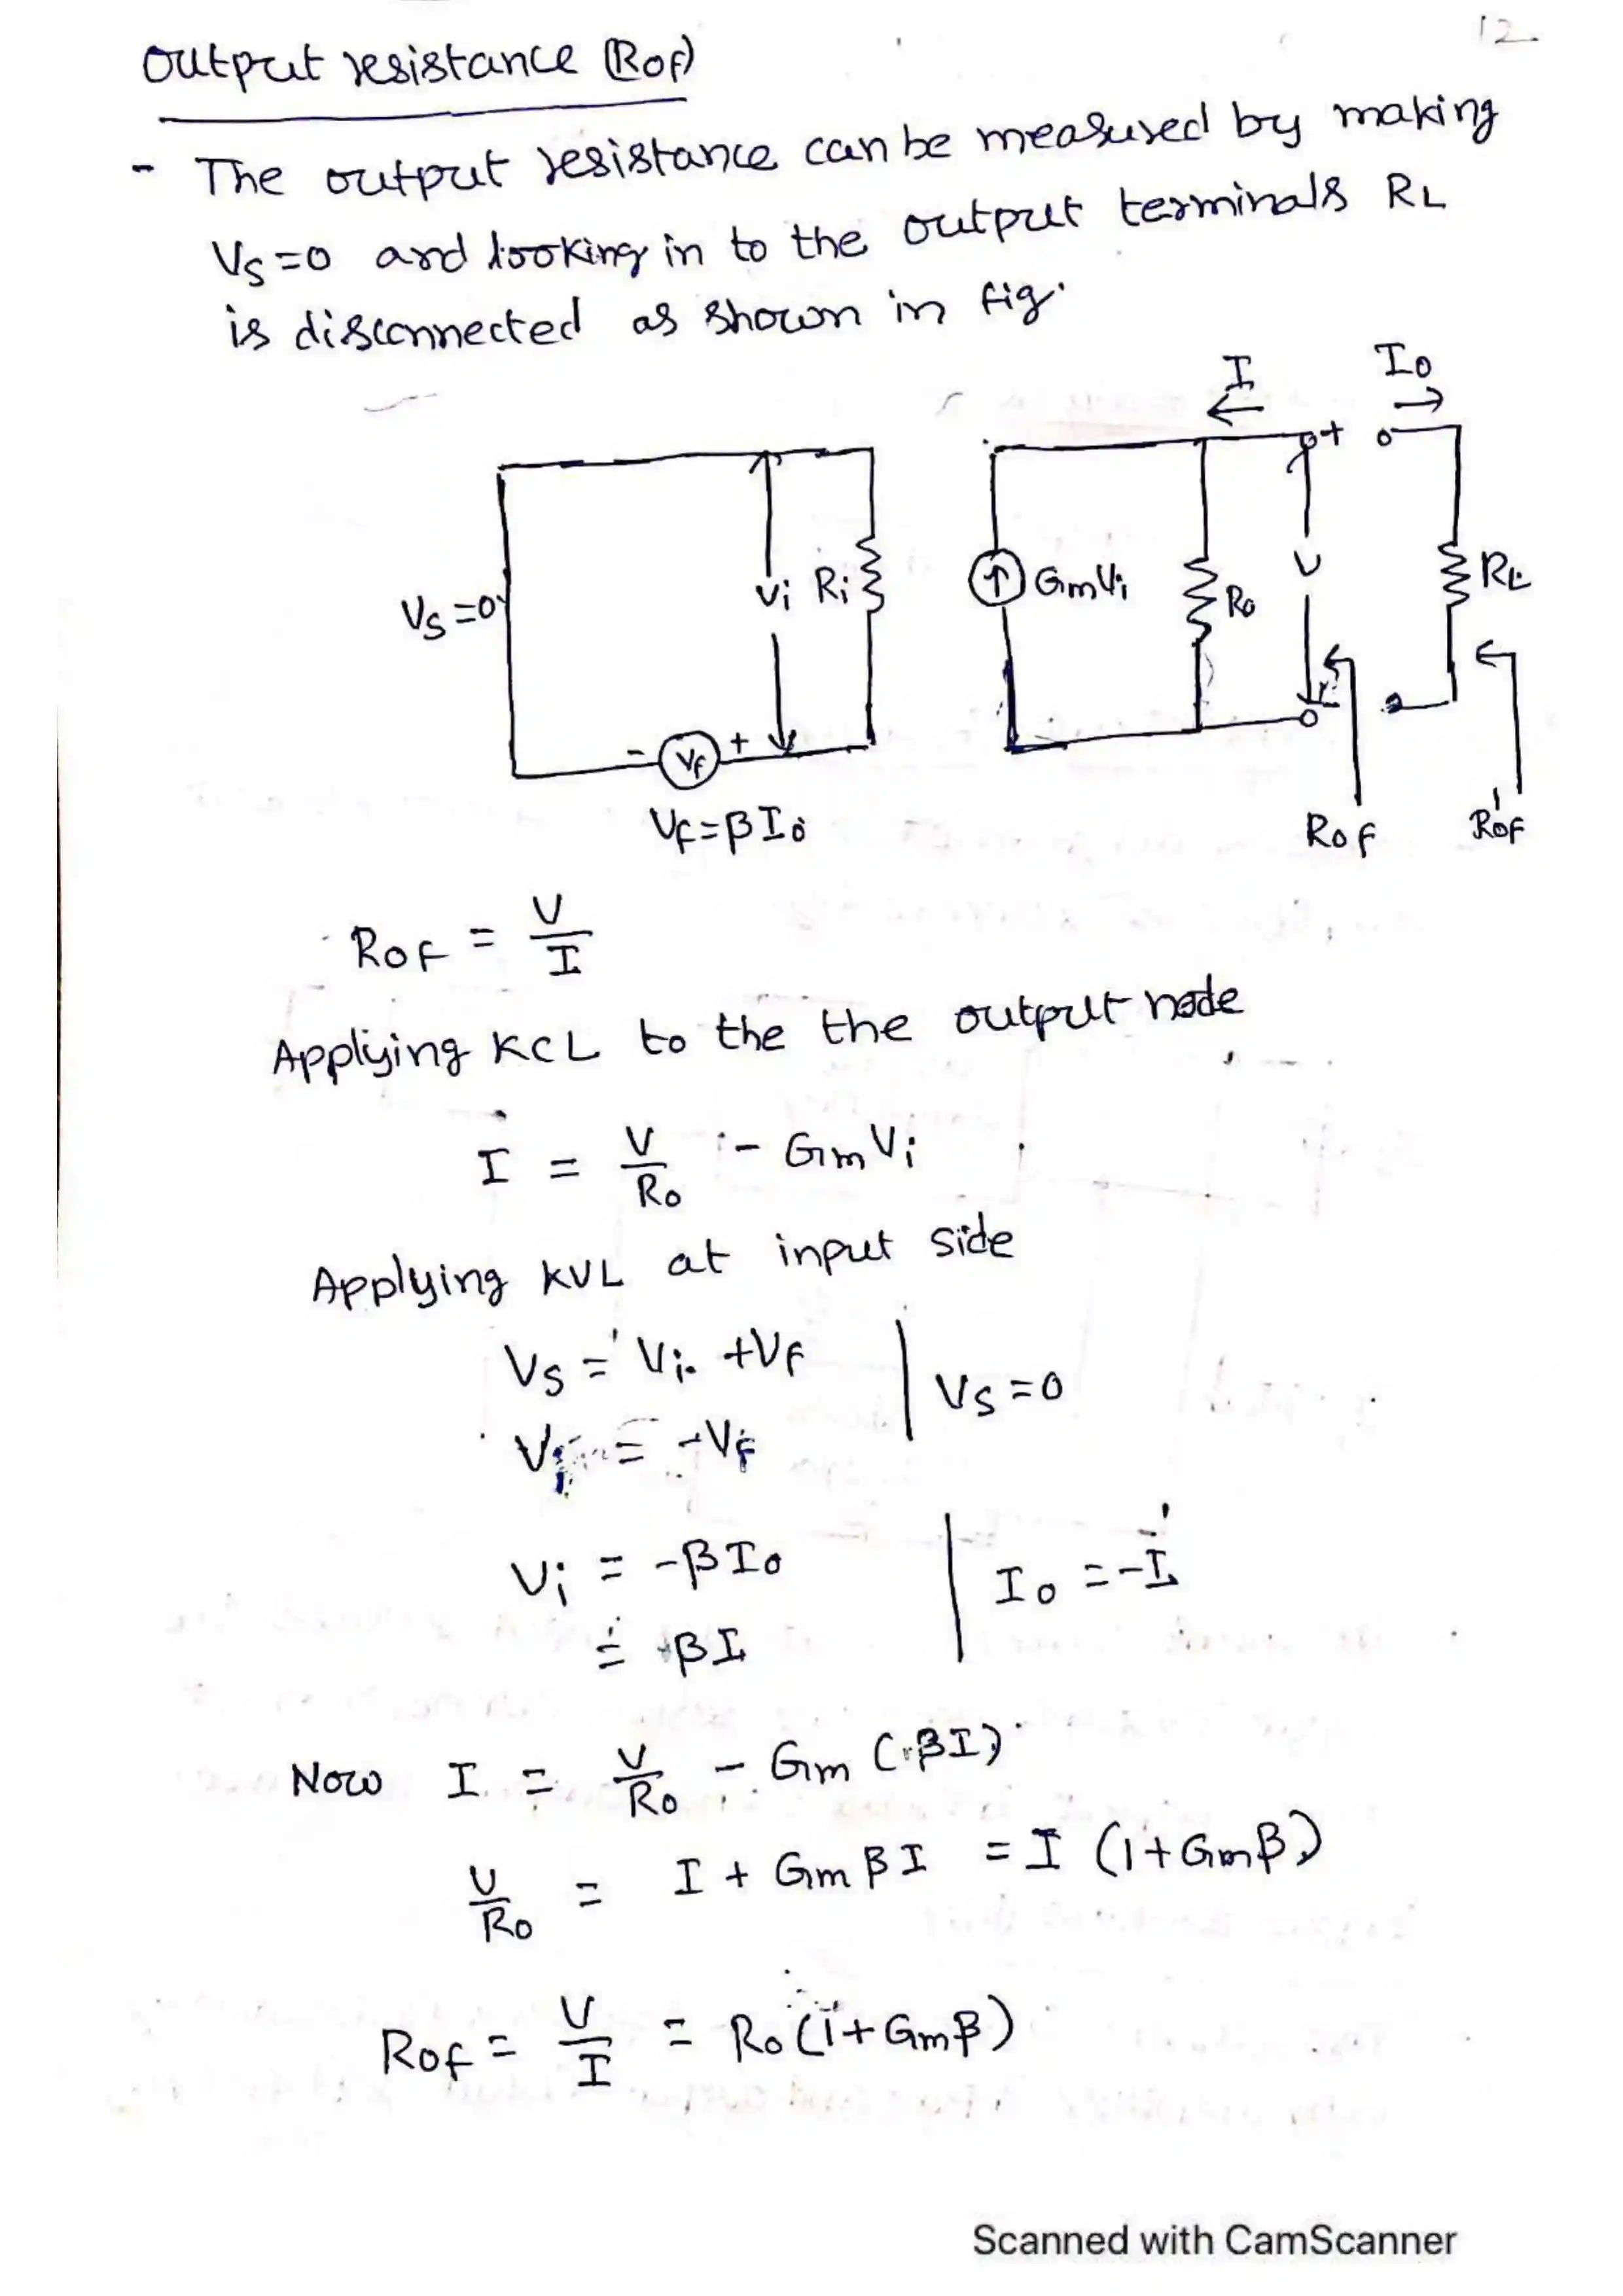 12
Output resistance (Rof)
- The output resistance can be measured by making
Vs=0 and looking in to the output terminals RL
is disconnected as shown in fig.
I Io
Vs=0 Vi Ri GmVi Ro V RL
- Vf +
Vf=βIo Rof R'of
Rof = V/I
Applying KCL to the the output node
I = V/Ro - GmVi
Applying KVL at input side
Vs = Vi + Vf | Vs=0
Vi = -Vf
Vi = -βIo | Io = -I
= βI
Now I = V/Ro - Gm (βI)
V/Ro = I + GmβI = I (1+Gmβ)
Rof = V/I = Ro(1+Gmβ)
Scanned with CamScanner